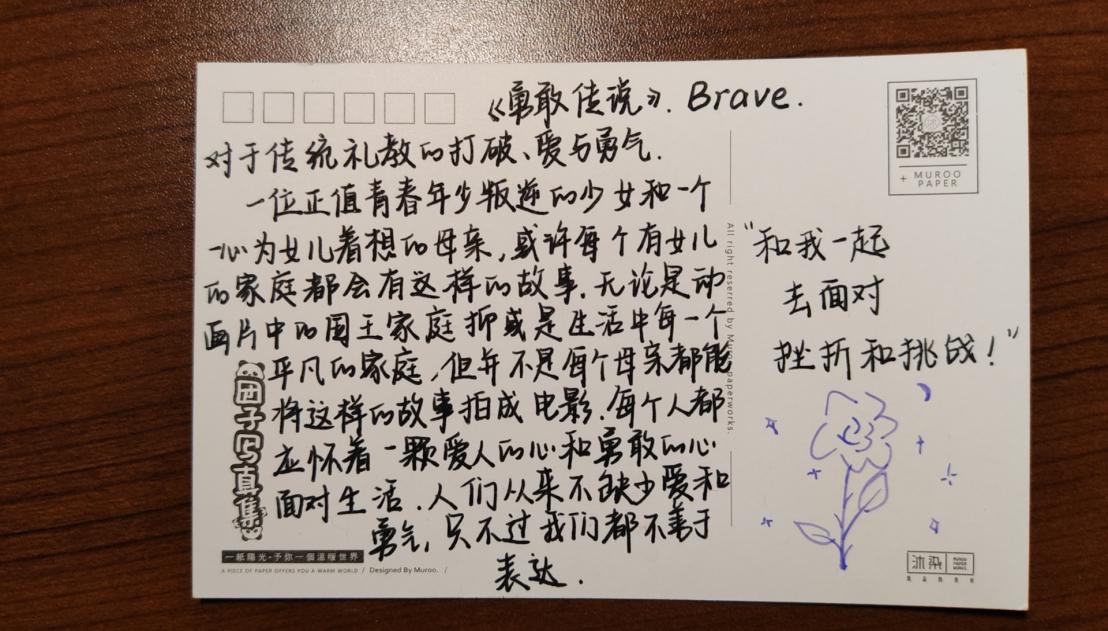 《勇敢传说》. Brave.
对于传统礼教的打破、爱与勇气.
一位正值青春年少叛逆的少女和一个
一心为女儿着想的母亲,或许每个有女儿
的家庭都会有这样的故事.无论是动
画片中的国王家庭抑或是生活中每一个
平凡的家庭,但并不是每个母亲都能
将这样的故事拍成电影.每个人都
应怀着一颗爱人的心和勇敢的心
面对生活.人们从来不缺少爱和
勇气,只不过我们都不善于
表达.
"和我一起
去面对
挫折和挑战!"
+ MUROO
PAPER
All right reserred by Muroo paperworks.
团子写真集
一紙陽光·予你一個溫暖世界
A PIECE OF PAPER OFFERS YOU A WARM WORLD / Designed By Muroo. /
沐染
MUROO
PAPER
WORKS